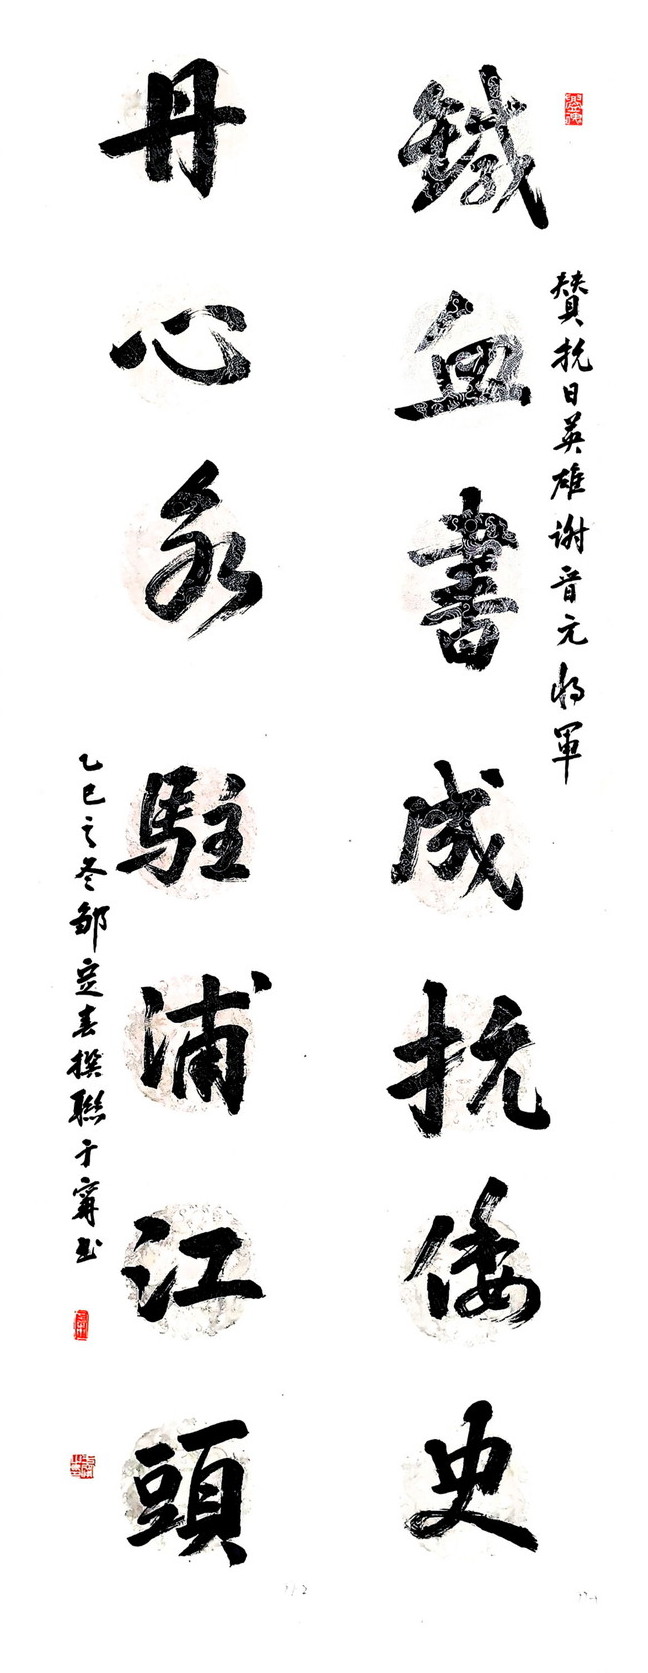 贊抗日英雄谢晋元将軍
鐵血書成抗倭史
丹心永駐浦江頭
乙巳之冬邹定春撰聯于甯书